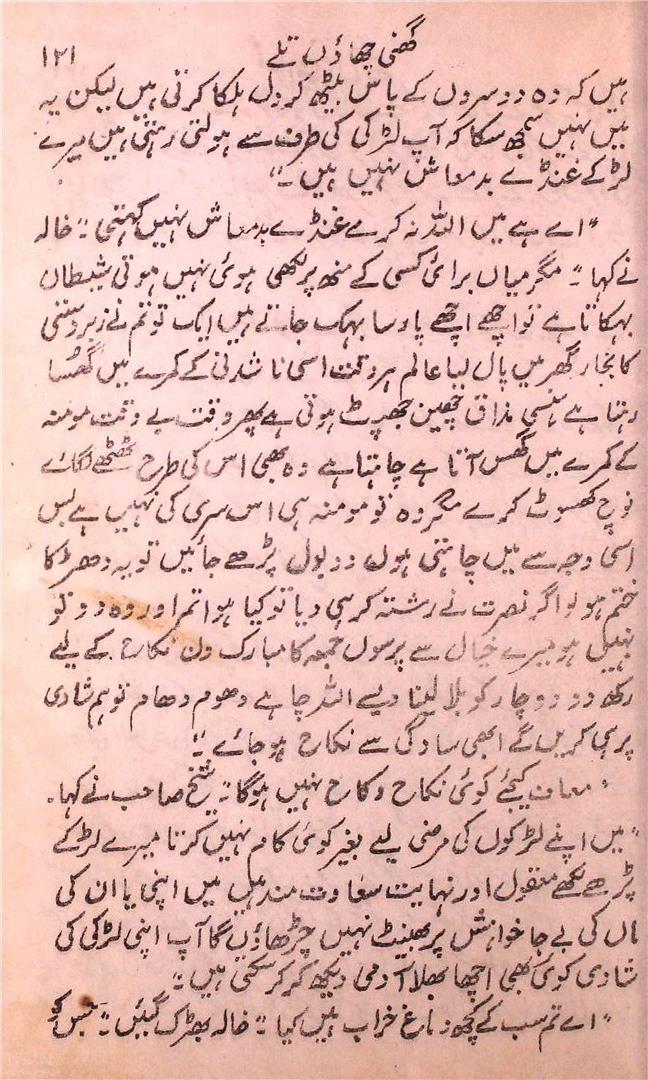 گھنی چھاؤں تلے
۱۲۱
ہیں کہ وہ دوسروں کے پاس بیٹھ کر دل ہلکا کرتی ہیں لیکن یہ
میں نہیں سمجھ سکا کہ آپ لڑکی کی طرف سے ہولتی رہتی ہیں میرے
لڑکے غنڈے بدمعاش نہیں ہیں۔"
"اے ہے میں اللہ نہ کرے غنڈے بدمعاش نہیں کہتی" خالہ
نے کہا۔" مگر میاں برائی کسی کے منھ پر لکھی ہوئی نہیں ہوتی شیطان
بہکاتا ہے تو اچھے اچھے پارسا بہک جاتے ہیں ایک تو تم نے زبردستی
کا بخار گھر میں پال لیا عالم ہر وقت اسی ناشدنی کے کمرے میں گھسا
رہتا ہے ہنسی مذاق چھین جھپٹ ہوتی ہے پھر وقت بے وقت مومنہ
کے کمرے میں گھس آتا ہے چاہتا ہے وہ بھی اس کی طرح ٹھٹھے لگائے
نوچ کھسوٹ کرے مگر وہ تو مومنہ ہی اس سری کی نہیں ہے بس
اسی وجہ سے میں چاہتی ہوں دو بول پڑھے جائیں تو یہ دھڑکا
ختم ہو لو اگر نصرت نے رشتہ کر ہی دیا تو کیا ہوا تمر اور وہ دو تو
نہیں ہو میرے خیال سے پرسوں جمعہ کا مبارک دن نکاح کے لیے
رکھ دو دو چار کو بلا لینا ویسے اللہ چاہے دھوم دھام تو ہم شادی
پر ہی کریں گے ابھی سادگی سے نکاح ہو جائے۔"
"معاف کیجئے کوئی نکاح وکاح نہیں ہوگا" شیخ صاحب نے کہا۔
"میں اپنے لڑکوں کی مرضی لیے بغیر کوئی کام نہیں کرتا میرے لڑکے
پڑھے لکھے معقول اور نہایت سعادت مند ہیں میں اپنی یا ان کی
ماں کی بے جا خواہش پر بھینٹ نہیں چڑھاؤں گا آپ اپنی لڑکی کی
شادی کوئی بھی اچھا بھلا آدمی دیکھ کر کر سکتی ہیں۔"
"اے تم سب کے کچھ دماغ خراب ہیں کیا" خالہ بھڑک گئیں۔"